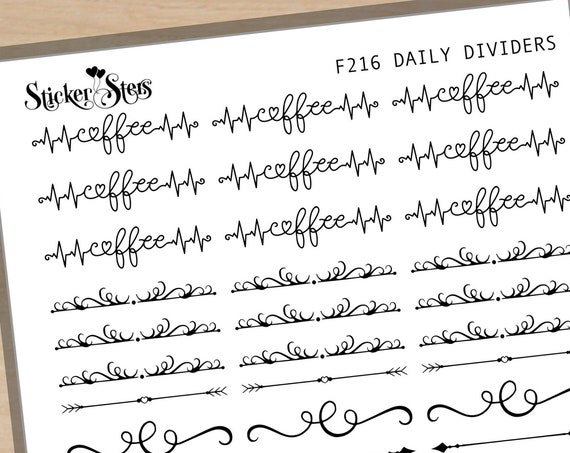 Sticker Sters
F216 DAILY DIVIDERS
coffee coffee coffee
coffee coffee coffee
coffee coffee coffee